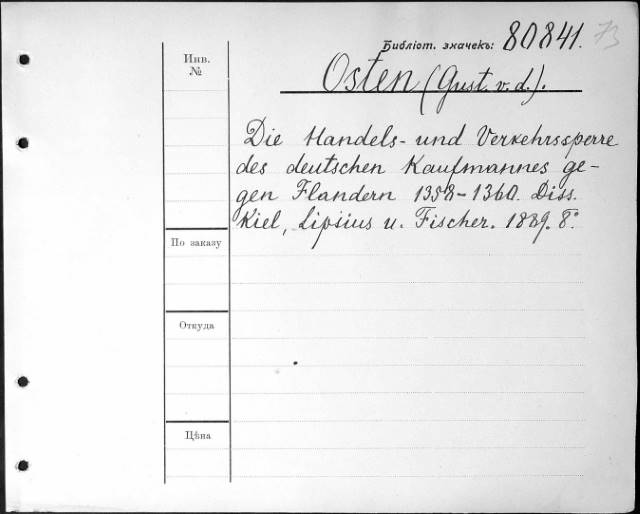 Библіот. значекъ: 80841. 73
Инв.
№
Osten (Gust. v. d.).
Die Handels- und Verkehrssperre
des deutschen Kaufmannes ge-
gen Flandern 1358-1360. Diss.
Kiel, Lipsius u. Fischer. 1889. 8°.
По заказу
Откуда
Цѣна